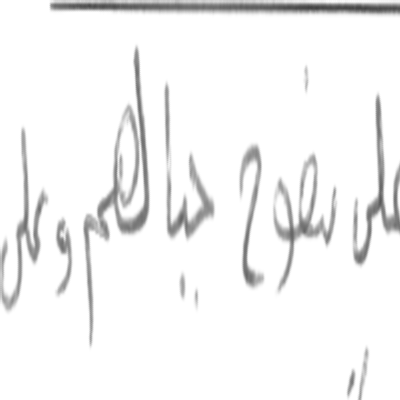 على سفوح جبالهم وعلى